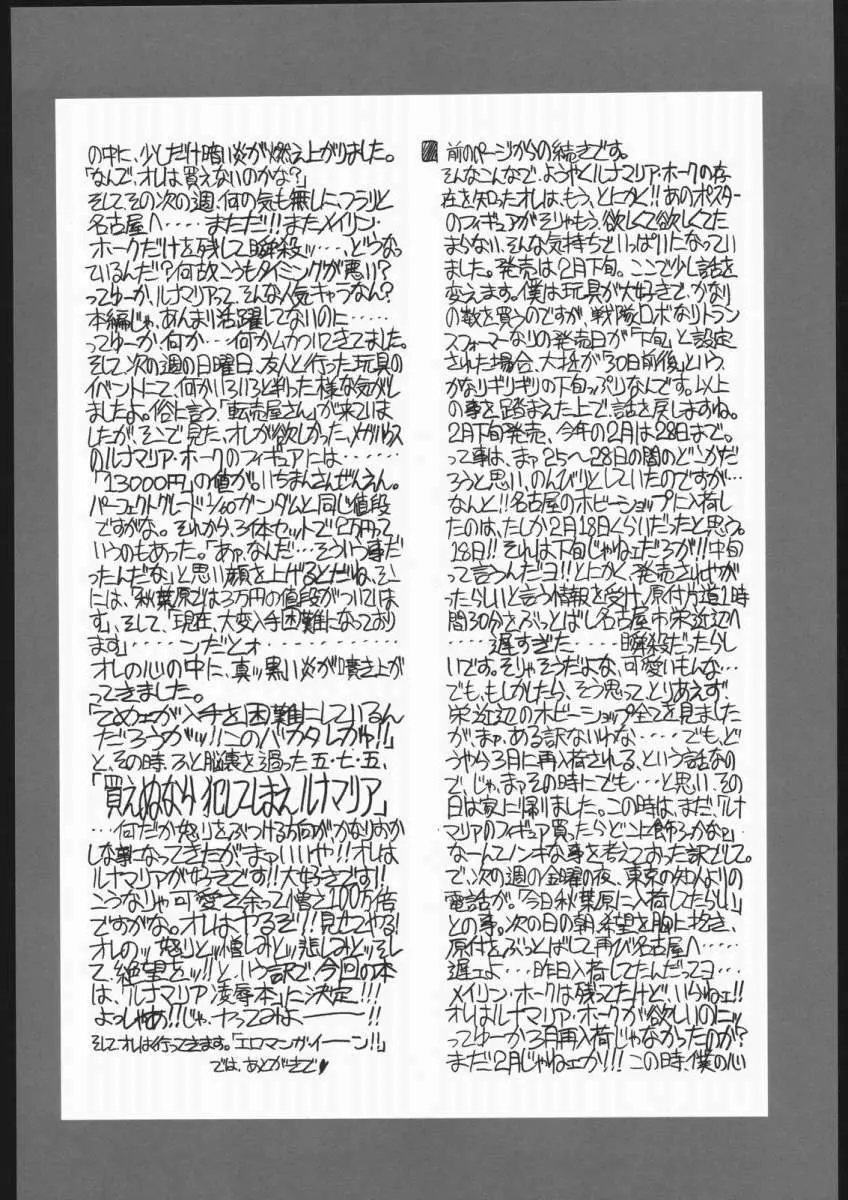 前のページからの続きです。
そんなこんなで、ようやくルナマリア・ホークの存
在を知ったオレは、もう、とにかく!!あのポスター
のフィギュアがそりゃもう、欲しくて欲しくてた
まらない、そんな気持ちでいっぱいになってい
ました。発売は2月下旬。ここで少し話を
変えます。僕は玩具が大好きで、かなり
の数を買うのですが、戦隊ロボなりトラン
スフォーマーなりの発売日が「下旬」と設定
された場合、大抵が「30日前後」という、
かなりギリギリの下旬っぷりなんです。以上
の事を踏まえた上で話を戻しますね。
2月下旬発売、今年の2月は28日まで。
って事は、まァ25〜28日の間のどこかだ
ろうと思い、のんびりとしていたのですが…
なんと!!名古屋のホビーショップに入荷し
たのは、たしか2月18日くらいだったと思う。
18日!!それは下旬じゃねェだろが!!中旬
って言うんだヨ!!とにかく、発売されやが
ったらしいと言う情報を受け、原付片道1時
間30分をぶっとばし名古屋市栄近辺へ
・・・・・遅すぎた・・・・・瞬殺だったらし
いです。そりゃそうだよな、可愛いもんな…
でも、もしかしたら、そう思って、とりあえず
栄近辺のホビーショップ全てを見ました
が、まァ、ある訳ないわな……でも、ど
うやら3月に再入荷される、という話なの
で、じゃ、まァその時にでも…と思い、その
日は家に帰りました。この時は、まだ、「ルナ
マリアのフィギュア買ったらどこに飾ろうかなァ」
なーんてノンキな事を考えておった訳でして。
で、次の週の金曜の夜、東京の知人よりの
電話が。「今日秋葉原に入荷したらしい」
との事。次の日の朝、希望を胸に抱き、
原付をぶっとばして再び名古屋へ・・・・・
遅ェよ…昨日入荷してたんだってヨ…
メイリン・ホークは残ってたけど、いらねェ!!
オレはルナマリア・ホークが欲しいのニッ
ってゆーか3月再入荷じゃなかったのか?
まだ2月じゃねェか!!!この時、僕の心
の中に、少しだけ暗い炎が燃え上がりました。
「なんで、オレは買えないのかな?」
そしてその次の週、何の気も無しに、フラリと
名古屋へ……まただ!!またメイリン・
ホークだけを残して瞬殺ッ…、どうなっ
ているんだ!?何故こうもタイミングが悪い?
ってゆーか、ルナマリアって、そんな人気キャラなん?
本編じゃ、あんまり活躍してないのに……
ってゆーか何か…何かムカついてきてました。
そして、次の週の日曜日、友人と行った玩具の
イベントにて、何かいろいろと判った様な気がし
ましたよ。俗に言う、「転売屋さん」が来ていま
したが、そこで見た、オレが欲しかった、メガハウス
のルナマリア・ホークのフィギュアには……
「13000円」の値が。いちまんさんぜんえん。
パーフェクトグレード1/60ガンダムと同じ値段
ですがな。それから、3体セットで2万円って
いうのもあった。「あァ、なんだ…そういう事だ
ったんだな」と思い顔を上げるとだね、そこ
には、「秋葉原では3万円の値段がついていま
す」、そして、「現在、大変入手困難になっており
ます」・・・・・ンだとォ・・・・・
オレの心の中に、真ッ黒い炎が噴き上が
ってきました。
「てめェが入手を困難にしているん
だろうがッ!!このバカタレがァ!!」
と、その時、ふと脳裏を過った五・七・五、
「買えぬなら犯してしまえルナマリア」
…何だか怒りをぶつける方向がかなりおか
しな事になってきたが、まァいいや!!オレは
ルナマリアが好きです!!大好きです!!
こうなりゃ可愛さ余って憎さ100万倍
ですがな。オレはやるぞ!!見せてやる!
オレのッ怒りとッ憎しみとッ悲しみとッそし
て、絶望をッ!!と、いう訳で、今回の本
は、「ルナマリア凌辱本」に決定!!!
よっしゃあ!!!じゃ、ヤってみよーーー!!
そしてオレは行ってきます。「エロマンガイーーン!!」
では、あとがきで♥